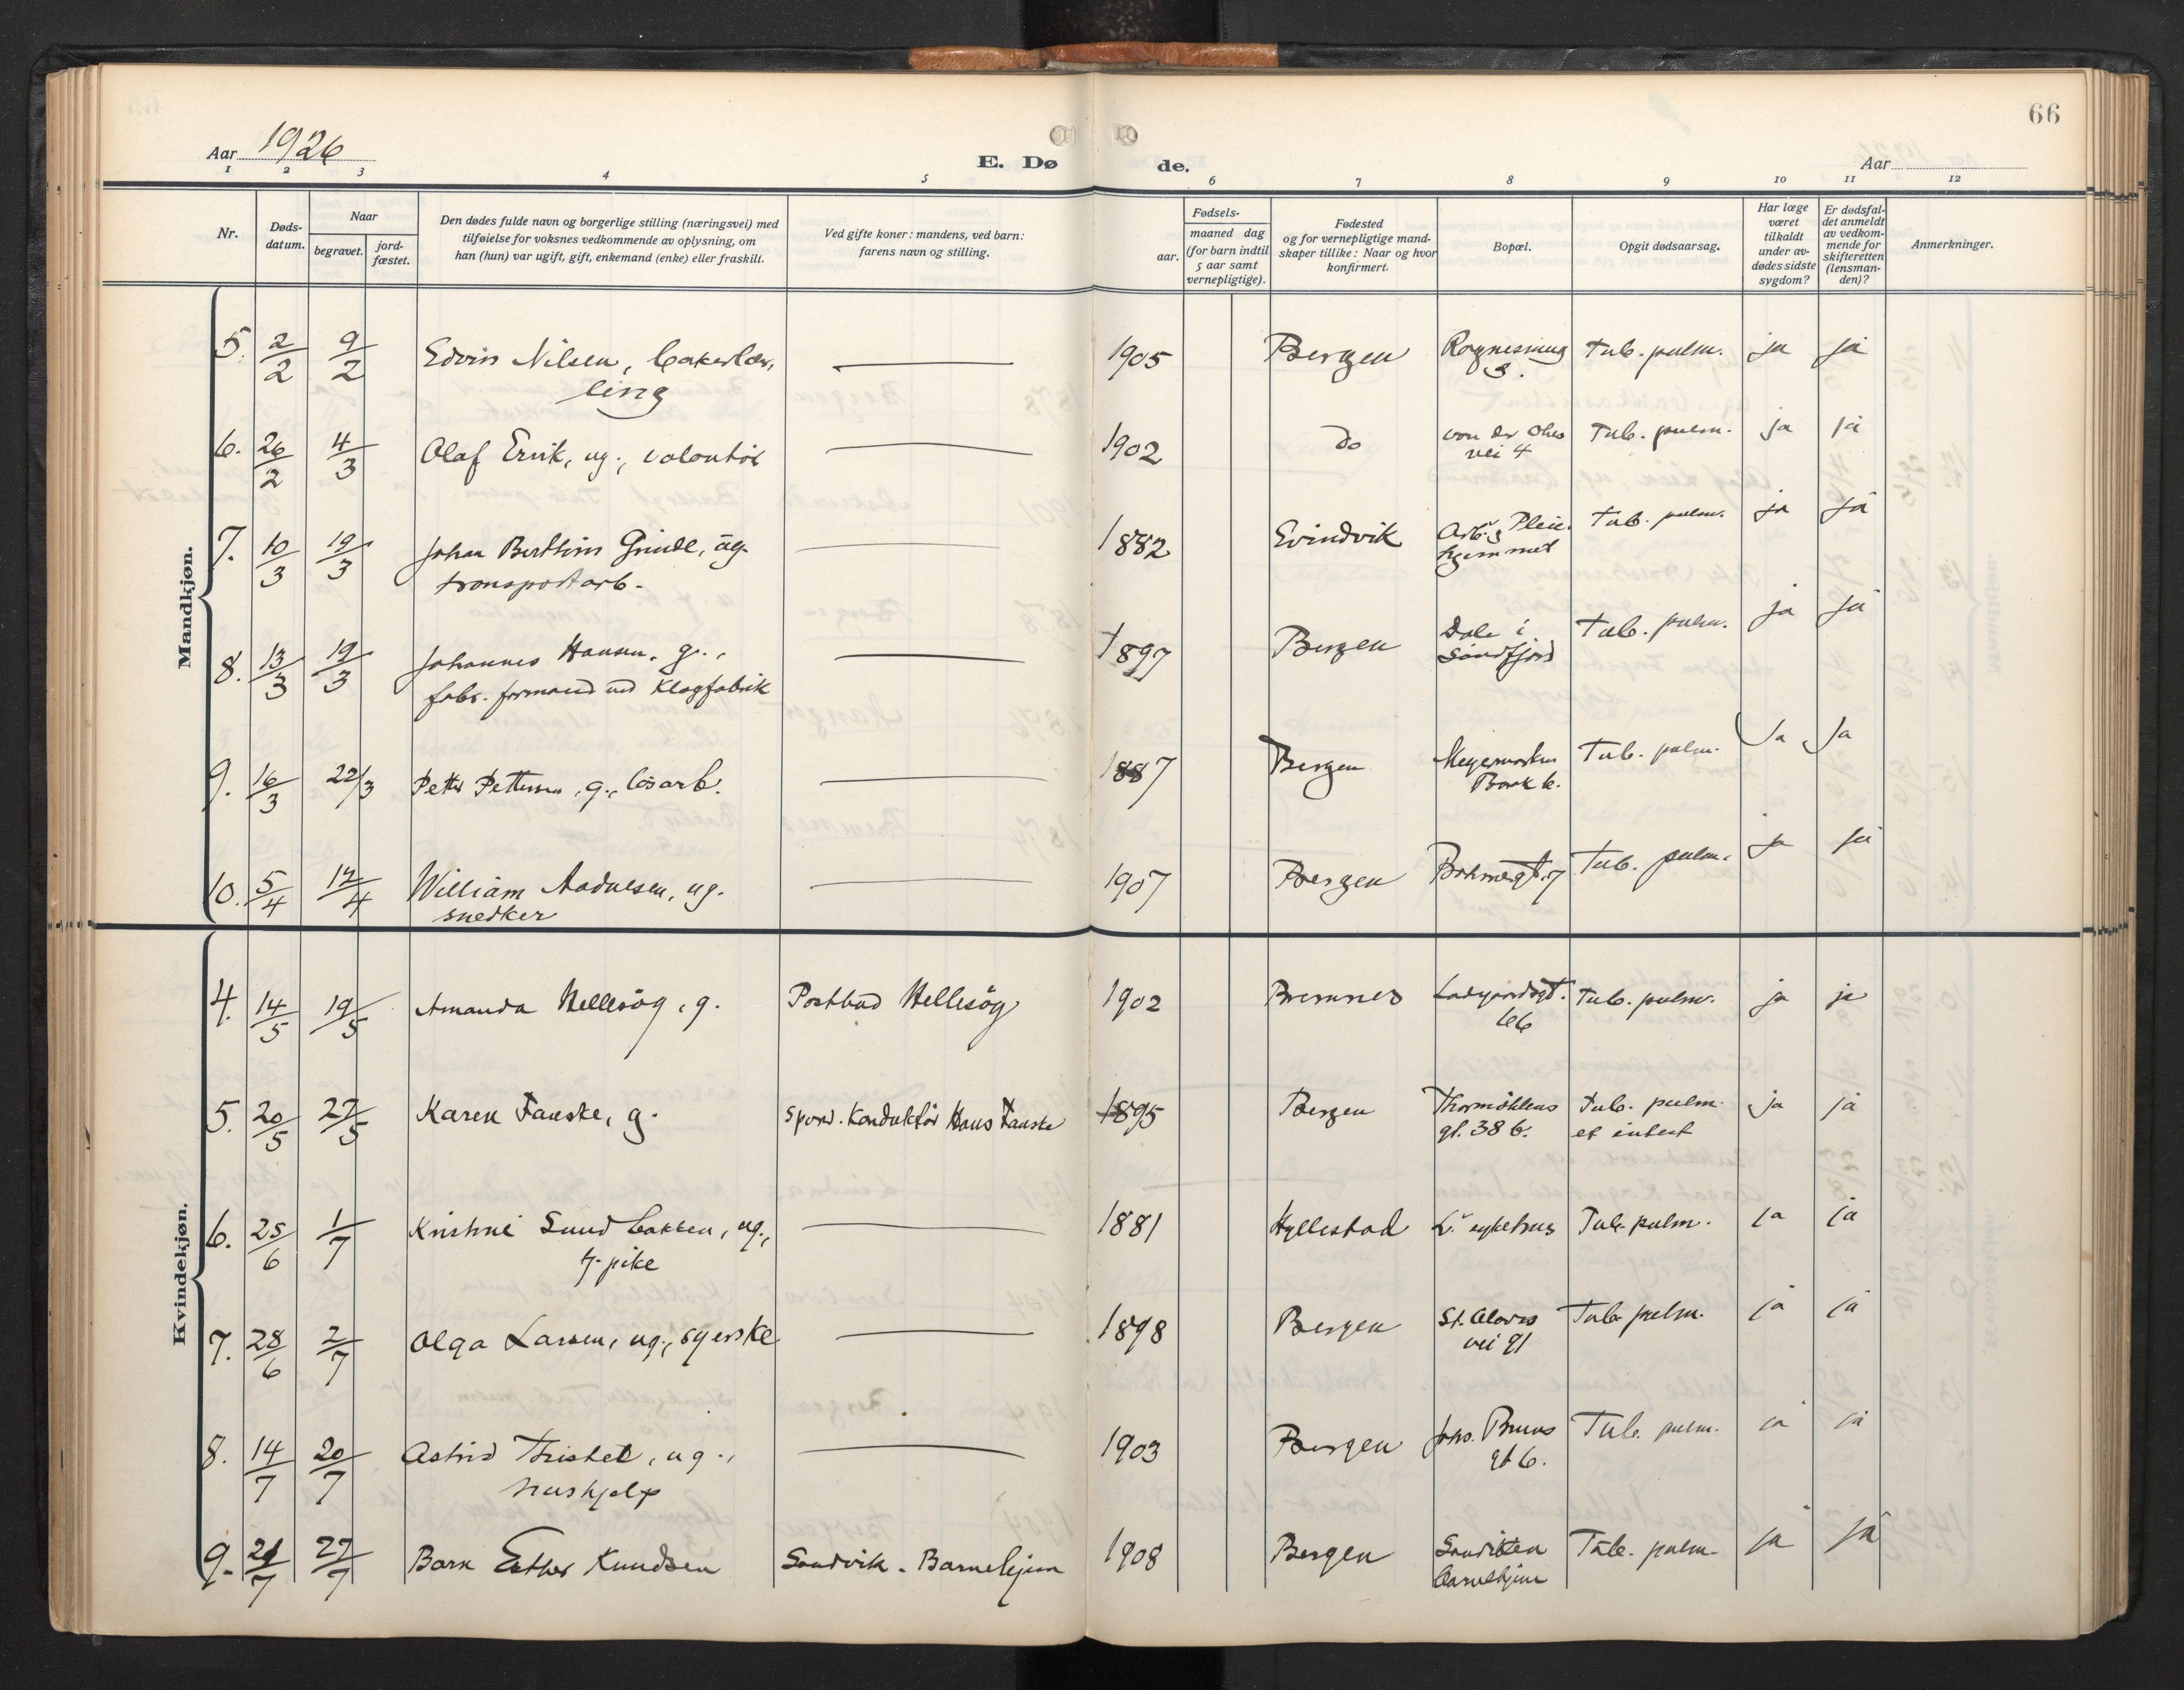 66
Aar 1926
E. Døde.
Aar
1 2 3 4 5 6 7 8 9 10 11 12
Nr.
Døds-
datum.
Naar
begravet.
jord-
fæstet.
Den dødes fulde navn og borgerlige stilling (næringsvei) med
tilføielse for voksnes vedkommende av oplysning, om
han (hun) var ugift, gift, enkemand (enke) eller fraskilt.
Ved gifte koner: mandens, ved barn:
farens navn og stilling.
Fødsels-
aar.
maaned dag
(for barn indtil
5 aar samt
vernepligtige).
Fødested
og for vernepligtige mand-
skaper tillike: Naar og hvor
konfirmert.
Bopæl.
Opgit dødsaarsag.
Har læge
været
tilkaldt
under av-
dødes sidste
sygdom?
Er dødsfal-
det anmeldt
av vedkom-
mende for
skifteretten
(lensman-
den)?
Anmerkninger.
Mandkjøn.
5. 2/2 9/2 Edvin Nilsen, bakerlær- 1905 Bergen Tub. pulm. ja ja
ling 3.
6. 26/2 4/3 Olaf Ervik, ug., volontør 1902 do von der Ohes Tub. pulm. ja ja
vei 4
7. 10/3 19/3 Johan Berthin Grinde, ug. 1882 Evindvik Arb. Pleie- Tub. pulm. ja ja
transportarb. hjemmet
8. 13/3 19/3 Johannes Hansen, g., 1897 Bergen Dale i Tub. pulm. ja ja
fabr. formand ved Klagfabrik Søndfjord
9. 16/3 22/3 Petter Pettersen, g., løsarb. 1887 Bergen Tub. pulm. Ja Ja
6.
10. 5/4 12/4 William Aadnesen, ug. 1907 Bergen Tub. pulm. ja ja
snedker
Kvindekjøn.
4. 14/5 19/5 Amanda Hellesøy, g. Postbud Hellesøy 1902 Bremnes Ladegaardsgt. Tub. pulm. ja ja
66
5. 20/5 27/5 Karen Fauske, g. Sporv. Konduktør Hans Fauske 1895 Bergen Thormøhlens Tub. pulm. ja ja
gt. 38 b. et intest
6. 25/6 1/7 Kristine Sundbakken, ug., 1881 Hyllestad L. sykehus Tub. pulm. ja ja
tj. pike
7. 28/6 2/7 Olga Larsen, ug., syerske 1898 Bergen St. Olavs Tub. pulm. ja ja
vei 91
8. 14/7 20/7 Astrid ug., 1903 Bergen Johs. Bruns Tub. pulm. ja ja
hushjelp gt 6.
9. 21/7 27/7 Barn Esther Knudsen Sandvik. Barnehjem 1908 Bergen Sandviken Tub. pulm. ja ja
barnehjem